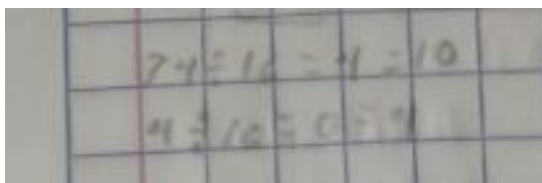 74÷16=4=10
4÷16=0=4